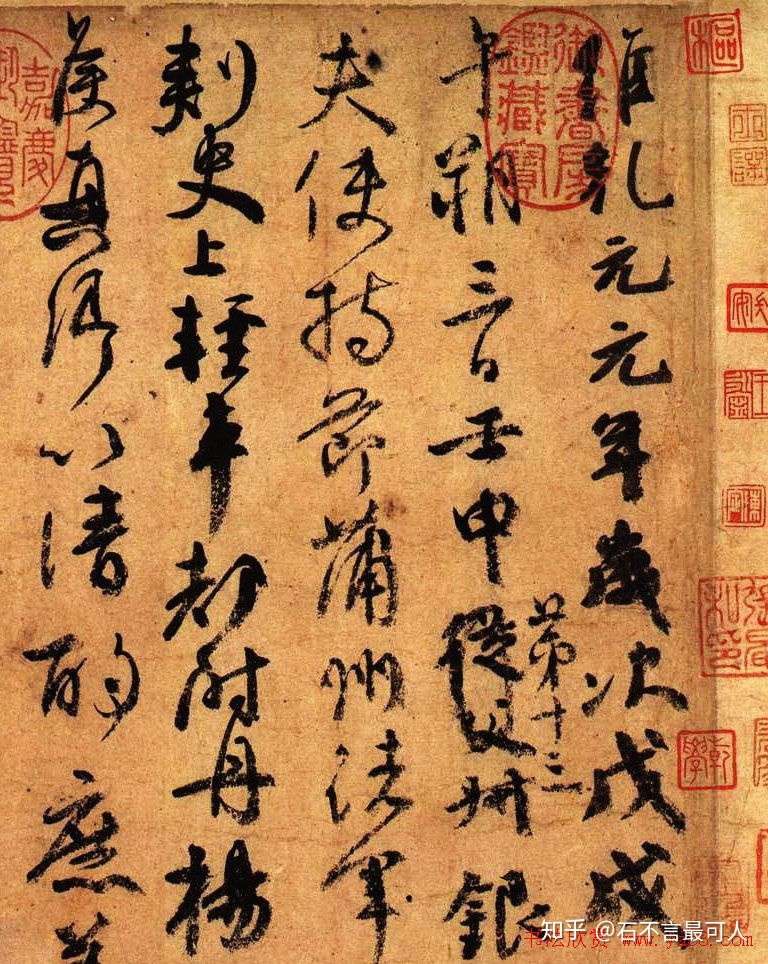 維乾元元年歲次戊戌
午朔三日壬申從父叔銀
第十三
夫使持節蒲州諸軍
刺史上輕車都尉丹楊
侯真卿以清酌庶羞
御書房鑑藏寶
嘉慶
知乎 @石不言最可人
书法欣赏